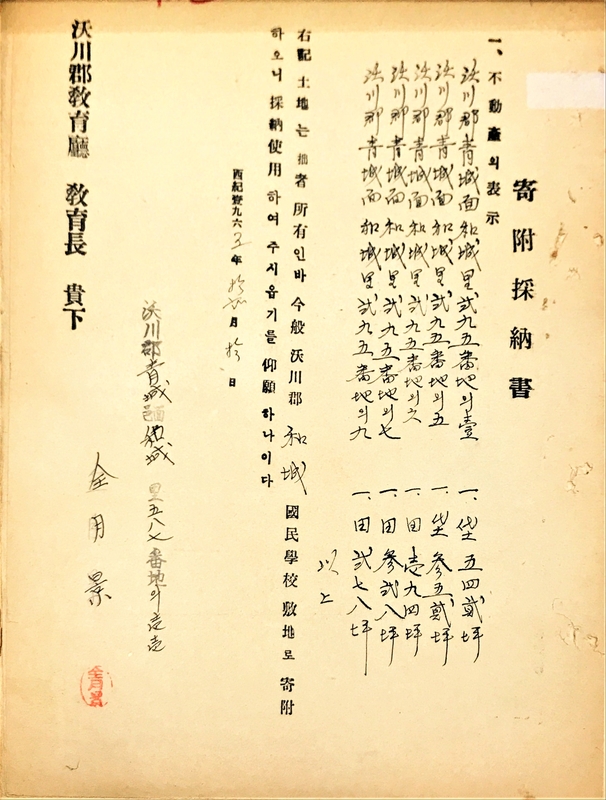 寄附採納書
一、不動產의表示
沃川郡靑城面和城里弐九五番地의壹 一、垈 五四貳坪
沃川郡靑城面和城里弐九五番地의五 一、垈 參五貳坪
沃川郡靑城面和城里弐九五番地의六 一、田 壱九四坪
沃川郡靑城面和城里弐九五番地의七 一、田 參弐八坪
沃川郡靑城面和城里弐九五番地의九 一、田 弐七八坪
以上
右記 土地는 拙者 所有인바 今般 沃川郡 和城 國民學校 敷地로 寄附
하오니 採納使用 하여 주시옵기를 仰願 하나이다
西紀壹九六 年 月 拾 日
沃川郡靑城面和城里五八七番地의
全用景
沃川郡敎育廳 敎育長 貴下